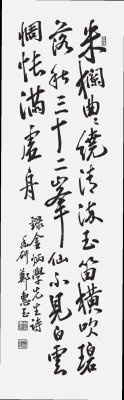 朱欄曲曲繞清流玉笛橫吹碧
落秋三十二峯仙不見白雲
惆悵滿虛舟
錄金炳學先生詩
玄研鄭惠玉